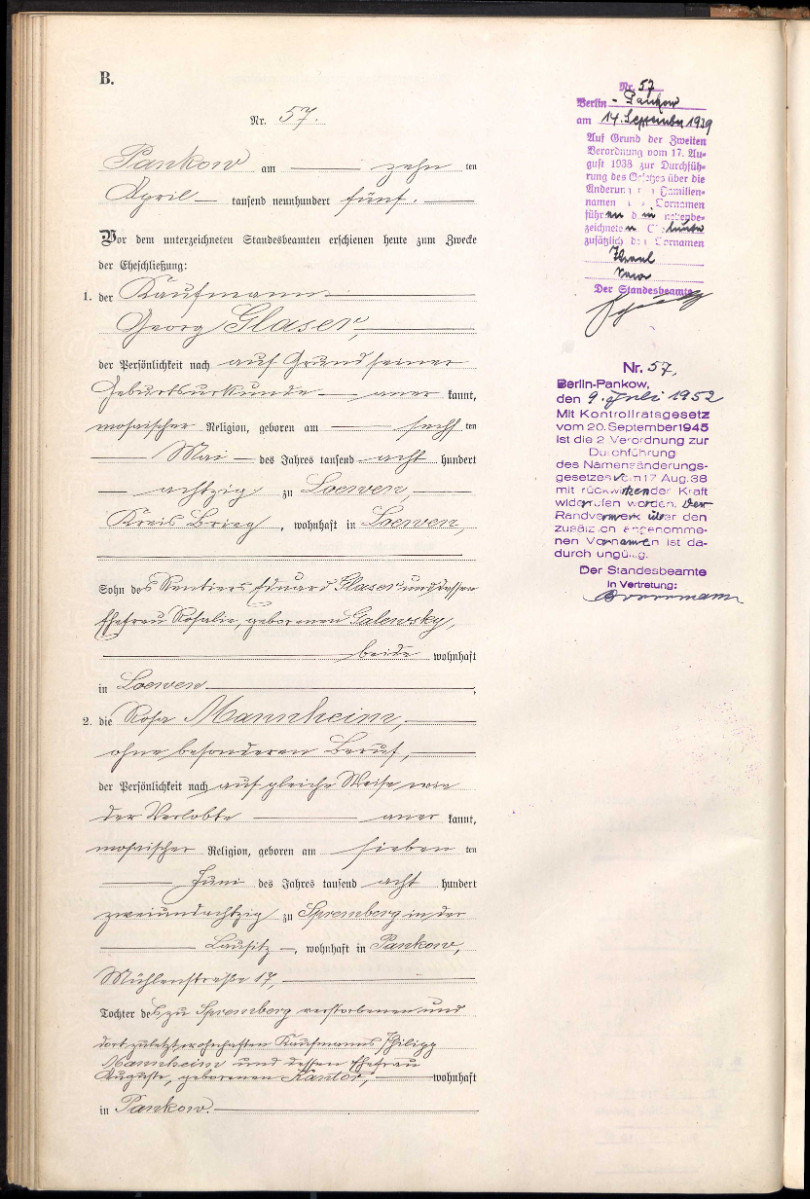 B.
Nr. 57.
Pankow am zehn ten
April tausend neunhundert fünf.
Vor dem unterzeichneten Standesbeamten erschienen heute zum Zwecke
der Eheschließung:
1. der Kaufmann
Georg Glaser,
der Persönlichkeit nach auf Grund seiner
Geburtsurkunde aner kannt,
mosaischer Religion, geboren am sechs ten
Mai des Jahres tausend acht hundert
achtzig zu Loewen,
Kreis Brieg, wohnhaft in Loewen,
Sohn des Rentiers Eduard Glaser und dessen
Ehefrau Rosalie, geborenen Galewsky,
beide wohnhaft
in Loewen.
2. die Rosa Mannheim,
ohne besonderen Beruf,
der Persönlichkeit nach auf gleiche Weise wie
der Verlobte aner kannt,
mosaischer Religion, geboren am sieben ten
Juni des Jahres tausend acht hundert
zweiundachtzig zu Spremberg in der
Lausitz, wohnhaft in Pankow,
Mühlenstraße 17,
Tochter des zu Spremberg verstorbenen und
dort zuletzt wohnhaften Kaufmanns Philipp
Mannheim und dessen Ehefrau
Auguste, geborenen Kantor, wohnhaft
in Pankow.
Nr. 57
Berlin - Pankow
am 14. September 1939
Auf Grund der Zweiten
Verordnung vom 17. Au-
gust 1938 zur Durchfüh-
rung des Gesetzes über die
Änderung von Familien-
namen und Vornamen
führen die nebenbe-
zeichneten Eheleute
zusätzlich den Vornamen
Israel
Sara
Der Standesbeamte
Nr. 57,
Berlin-Pankow,
den 9. Juli 1952
Mit Kontrollratsgesetz
vom 20. September 1945
ist die 2 Verordnung zur
Durchführung
des Namensänderungs-
gesetzes vom 17 Aug. 38
mit rückwirkender Kraft
widerrufen worden. Der
Randvermerk über den
zusätzlich angenomme-
nen Vornamen ist da-
durch ungültig.
Der Standesbeamte
In Vertretung: